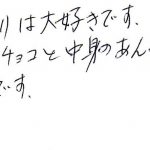 りは大好きです.
チョコと中身のあん
です.